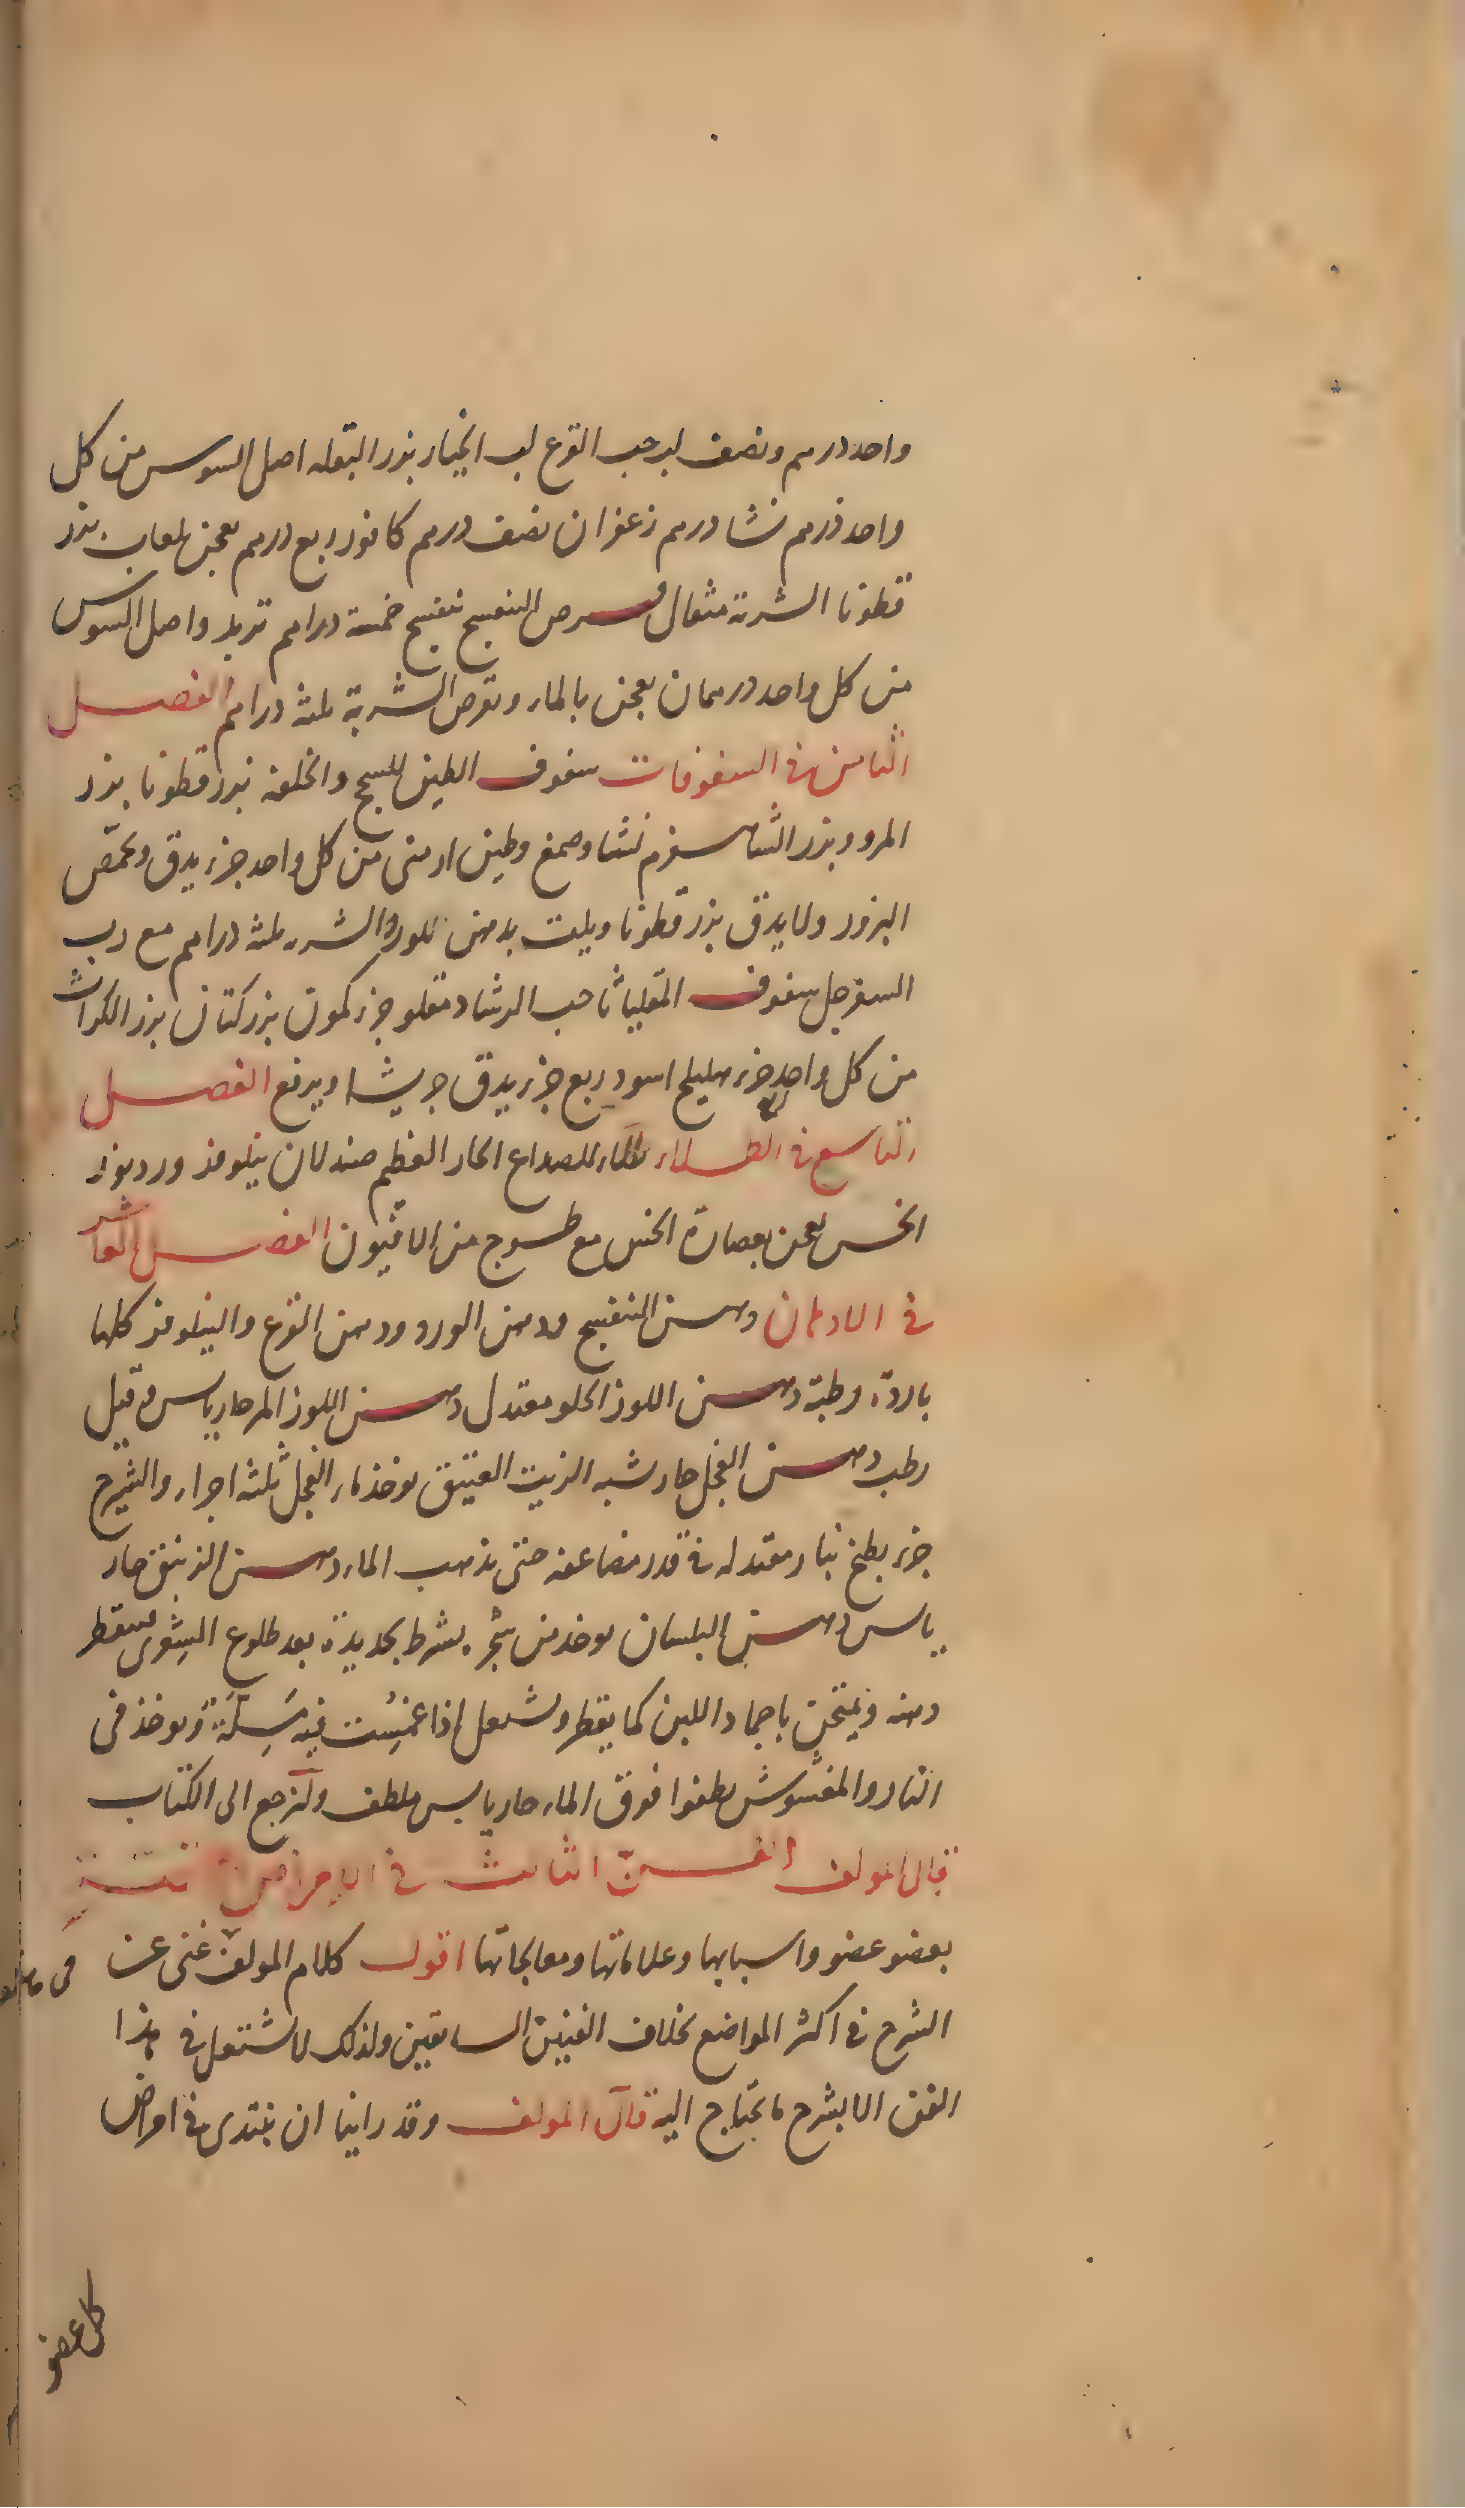 واحد درهم ونصف لب حب القرع لب الخيار بزر البقله اصل السوس من كل
واحد درهم نشا درهم زعفران نصف درهم كافور ربع درهم يعجن بلعاب بزر
قطونا الشربة مثقال قرص البنفسج بنفسج خمسة دراهم تربد واصل السوس
من كل واحد درهمان يعجن بالماء ويقرص الشربة ثلثة دراهم الفصل
الثامن فى السفوفات سفوف الطين للسحج والخلفة بزر قطونا بزر
المرو وبزر الشاهسفرم نشا وصمغ وطين ارمنى من كل واحد جزء يدق ويحمص
البزور ولا يدق بزر قطونا ويلت بدهن الورد والشربه ثلثة دراهم مع رب
السفرجل سفوف المقلياثا حب الرشاد مقلو جزء كمون بزر كتان بزر الكراث
من كل واحد جزء هليلج اسود ربع جزء يدق جريشا ويرفع الفصل
التاسع فى الطلاء طلاء للصداع الحار العظيم صندلان نيلوفر ورد بزر
الخس يعجن بعصارة الخس مع طسوج من الافيون الفصل العاشر
فى الادهان دهن البنفسج ودهن الورد ودهن القرع والنيلوفر كلها
باردة رطبة دهن اللوز الحلو معتدل دهن اللوز المر حار يابس وقيل
رطب دهن الفجل حار شبه الزيت العتيق يوخذ ماء الفجل ثلثة اجزاء والشيرج
جزء يطبخ بنار معتدله فى قدر مضاعفه حتى يذهب الماء دهن الزنبق حار
يابس دهن البلسان يوخذ من شجره يشرط بحديدة بعد طلوع الشعرى فيقطر
دهنه ويمتحن باجماد اللبن كما يقطر ويشعل اذا غمست فيه مسلة ويوخذ فى
النار والمغشوش يطفوا فوق الماء حار يابس ملطف ولنرجع الى الكتاب
قال المولف الفن الثالث فى الامراض المختصة
بعضو عضو واسبابها وعلاماتها ومعالجاتها اقول كلام المولف غنى عن
الشرح فى اكثر المواضع بخلاف الفنين السابقين ولذلك لا نشتغل فى هذا
الفن الا بشرح ما يحتاج اليه قال المولف وقد راينا ان نبتدى فى امراض
كل عضو